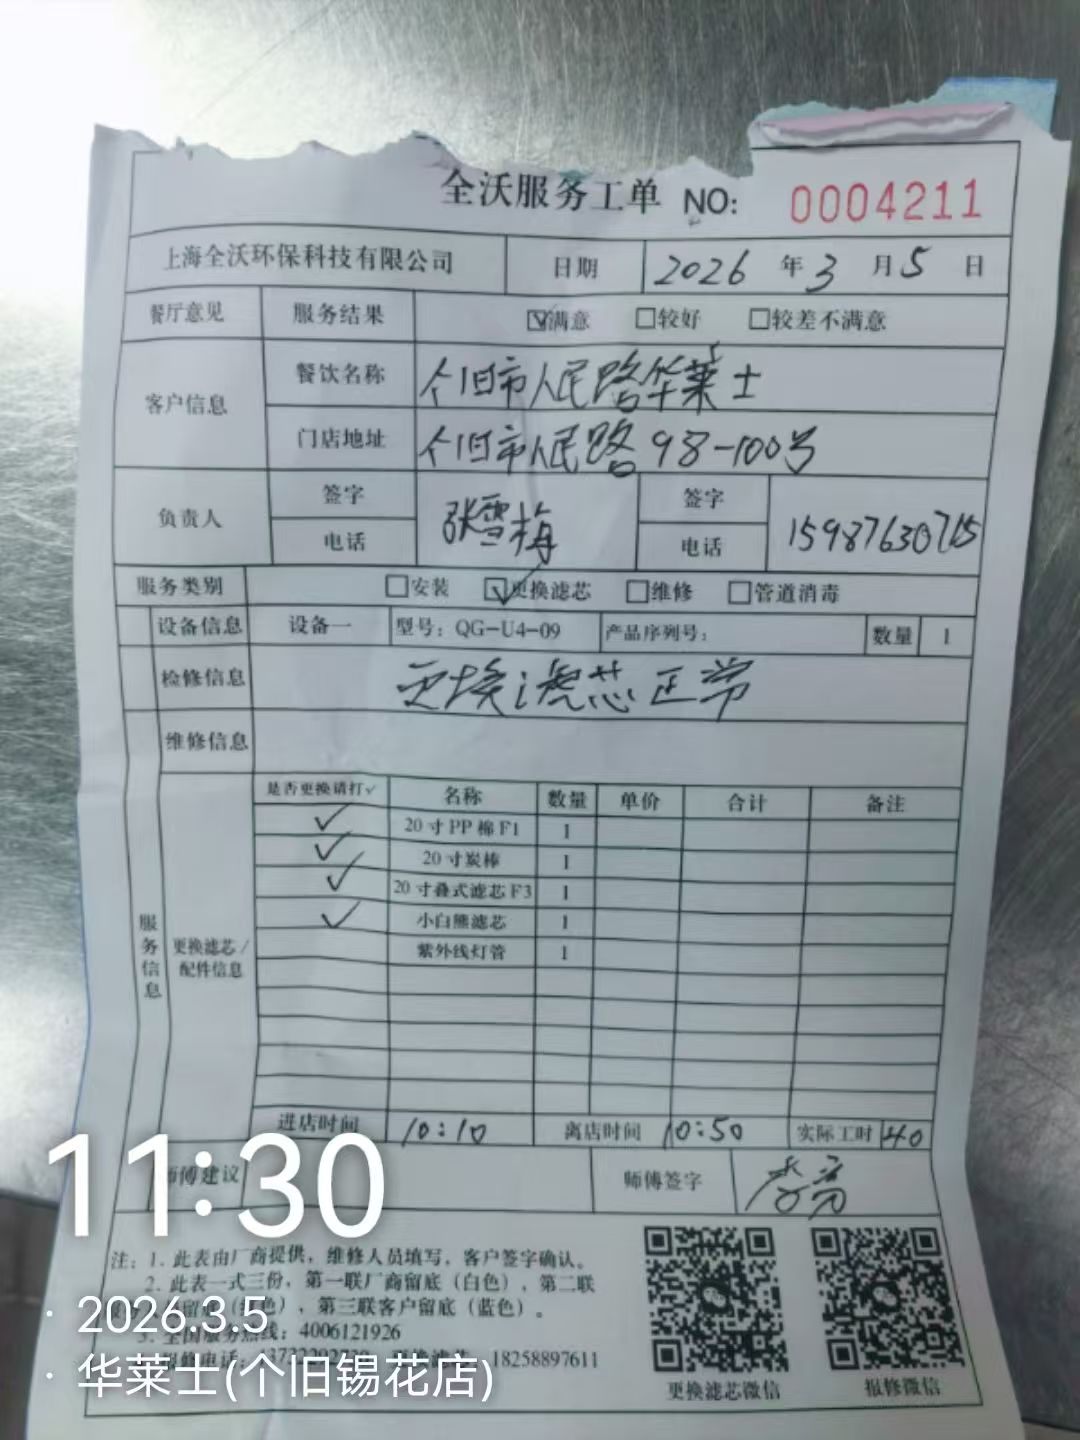 全沃服务工单 NO: 0004211
上海全沃环保科技有限公司 日期 2026 年 3 月 5 日
餐厅意见 服务结果 ☑满意 □较好 □较差不满意
客户信息 餐饮名称 个旧市人民路华莱士
门店地址 个旧市人民路98-100号
负责人 签字 电话 张雪梅 签字 电话 15987630715
服务类别 □安装 ☑更换滤芯 □维修 □管道消毒
设备信息 设备一 型号：QG-U4-09 产品序列号： 数量 1
检修信息 更换滤芯正常
维修信息
服务信息 更换滤芯/配件信息
是否更换请打✓ 名称 数量 单价 合计 备注
✓ 20寸PP棉F1 1
✓ 20寸炭棒 1
✓ 20寸叠式滤芯F3 1
✓ 小白熊滤芯 1
紫外线灯管 1
进店时间 10:10 离店时间 10:50 实际工时 40
师傅建议 师傅签字 李亮
11:30
注：1. 此表由厂商提供，维修人员填写，客户签字确认。
2. 此表一式三份，第一联厂商留底（白色），第二联
留底（红色），第三联客户留底（蓝色）。
3. 全国服务热线：4006121926
报修电话： 更换滤芯 18258897611
更换滤芯微信 报修微信
· 2026.3.5
· 华莱士(个旧锡花店)